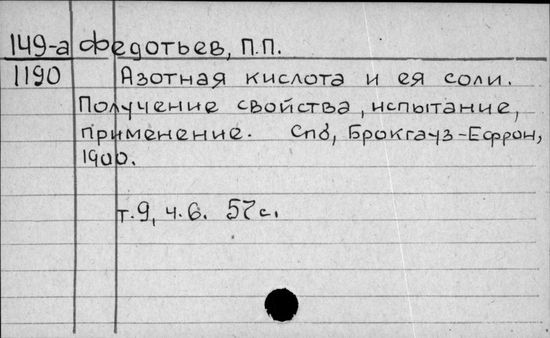 149-а Федотьев, П.П.
1190 Азотная кислота и ея соли.
Получение свойства, испытание,
применение. Спб, Брокгауз-Ефрон,
1900.
т.9, ч.6. 57с.